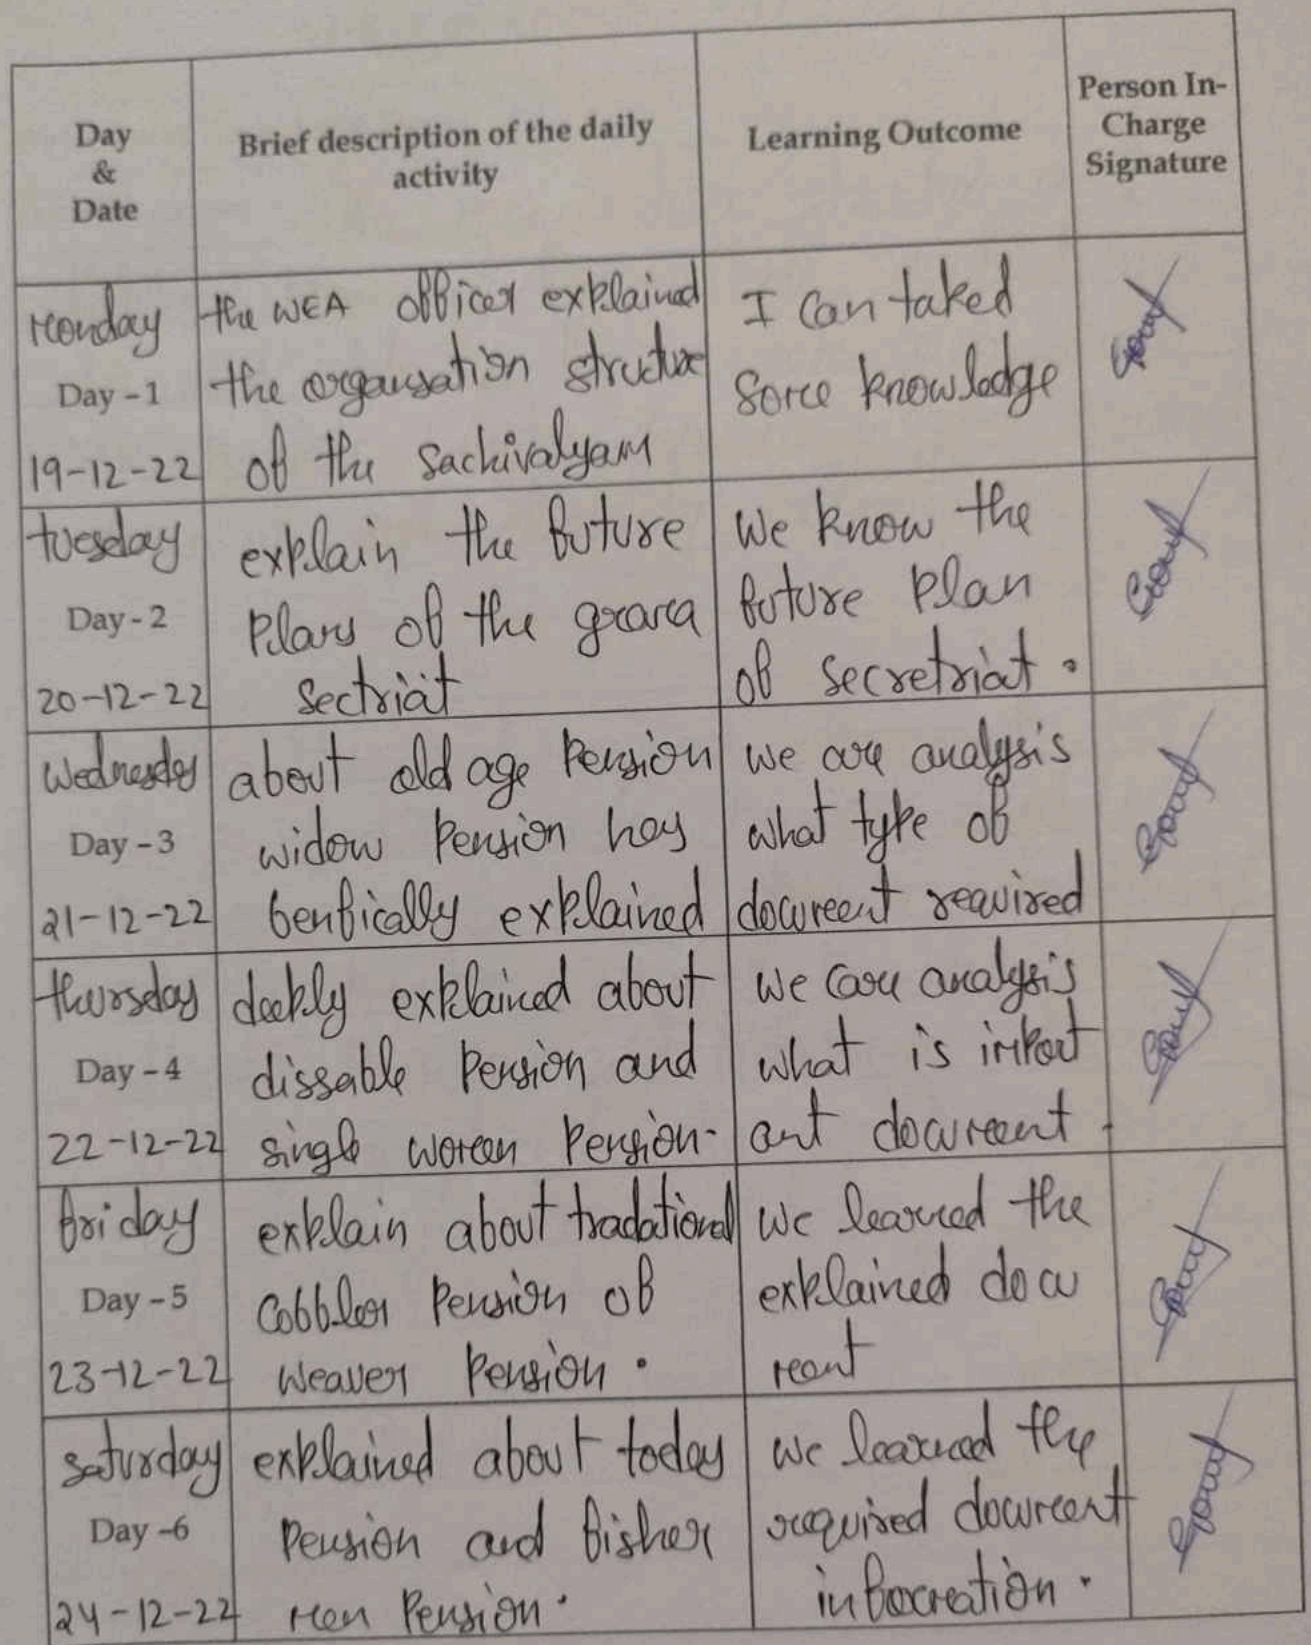 Day
&
Date
Brief description of the daily
activity
Learning Outcome
Person In-
Charge
Signature
Monday
Day - 1
19-12-22
the WEA officer explained
the organisation structure
of the Sachivalyam
I can taked
some knowledge
tuesday
Day - 2
20-12-22
explain the future
Plans of the grama
sectriat
we know the
future plan
of secretriat.
wednesday
Day - 3
21-12-22
about old age Pension
widow Pension has
benfically explained
we are analysis
what type of
document required
thursday
Day - 4
22-12-22
deeply explained about
dissable Pension and
single women Pension-
we can analysis
what is import
ant document.
friday
Day - 5
23-12-22
explain about tradational
Cobbler Pension of
weaver Pension.
we learned the
explained docu
ment
saturday
Day -6
24-12-22
explained about today
Pension and fisher
men Pension.
we learned the
required document
information.